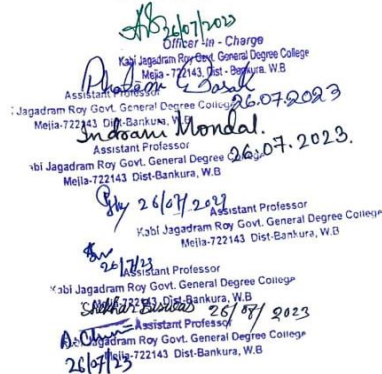 26/07/2023
Officer -In - Charge
Kabi Jagadram Roy Govt. General Degree College
Mejia - 722143, Dist - Bankura, W.B
Assistant Professor
26.07.2023
Jagadram Roy Govt. General Degree College
Mejia-722143 Dist-Bankura, W.B
Indrani Mondal.
Assistant Professor
26.07.2023.
abi Jagadram Roy Govt. General Degree College
Mejia-722143 Dist-Bankura, W.B
26/07/2023
Assistant Professor
Kabi Jagadram Roy Govt. General Degree College
Mejia-722143 Dist-Bankura, W.B
26/7/23
Assistant Professor
Kabi Jagadram Roy Govt. General Degree College
Mejia-722143 Dist-Bankura, W.B
Shekhar Biswas 26/07/2023
Assistant Professor
Jagadram Roy Govt. General Degree College
Mejia-722143 Dist-Bankura, W.B
26/07/23